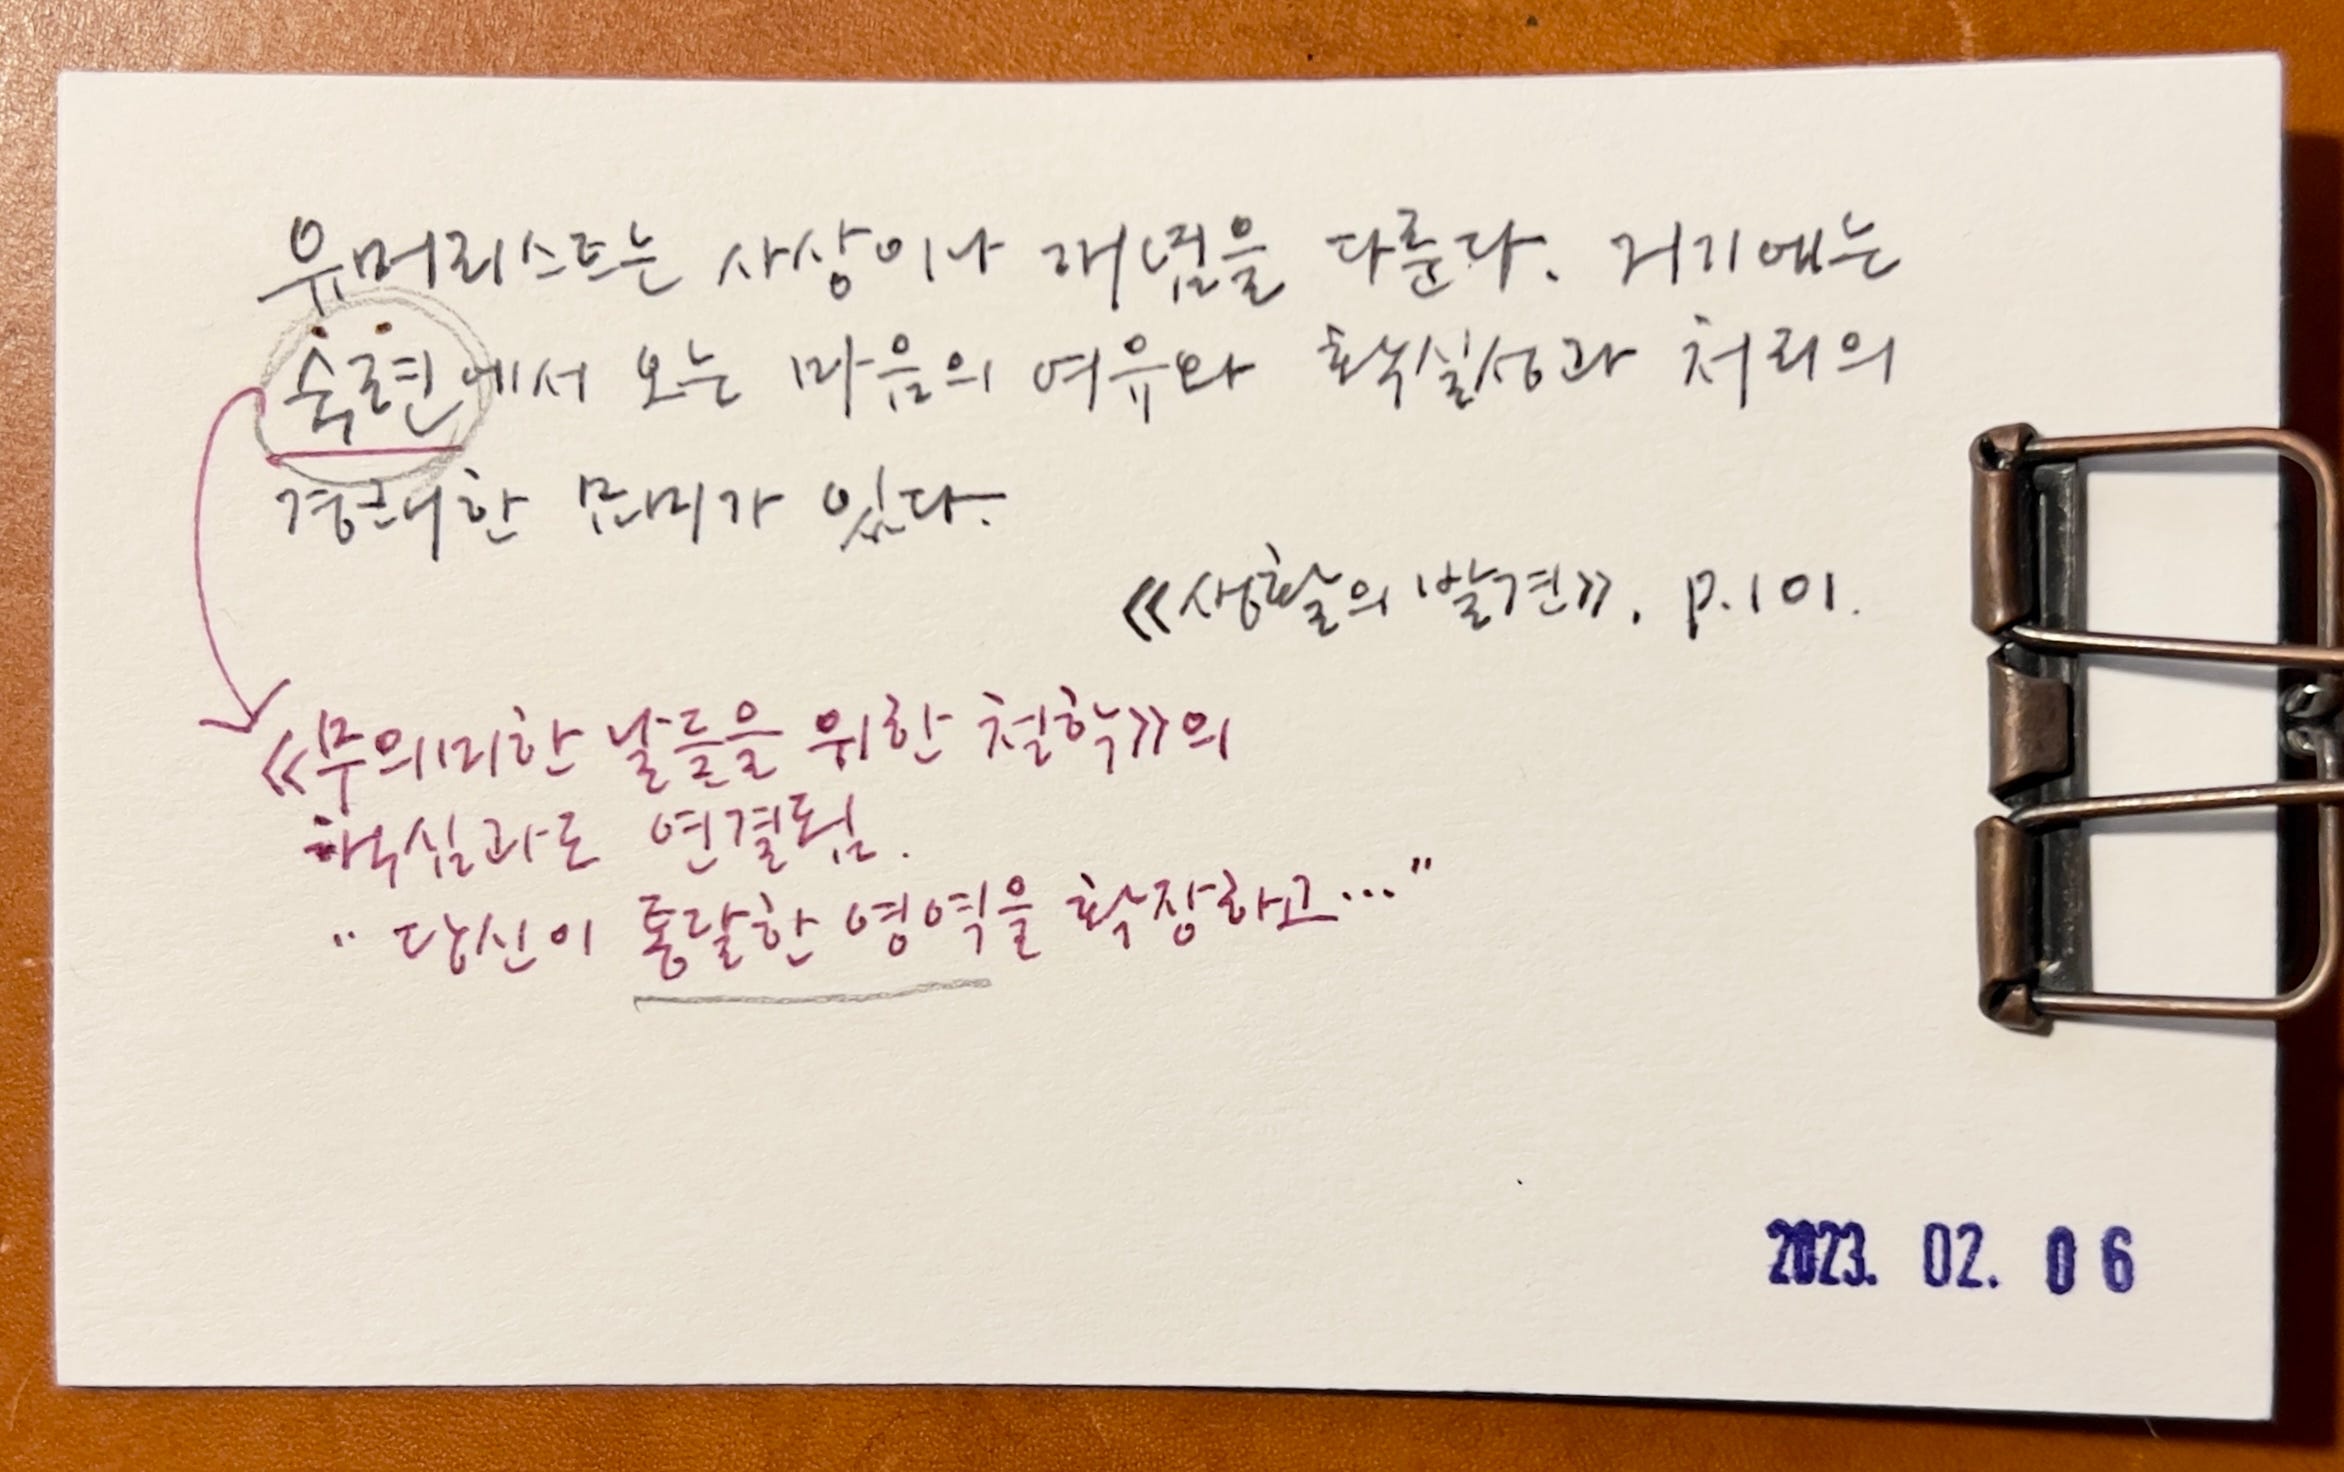 유머리스트는 사상이나 개념을 다룬다. 거기에는
숙련에서 오는 마음의 여유와 확실성과 처리의
경쾌한 묘미가 있다.
《생활의 발견》, p.101.
《무의미한 날들을 위한 철학》의
핵심과도 연결됨.
"당신이 통달한 영역을 확장하고…"
2023. 02. 06